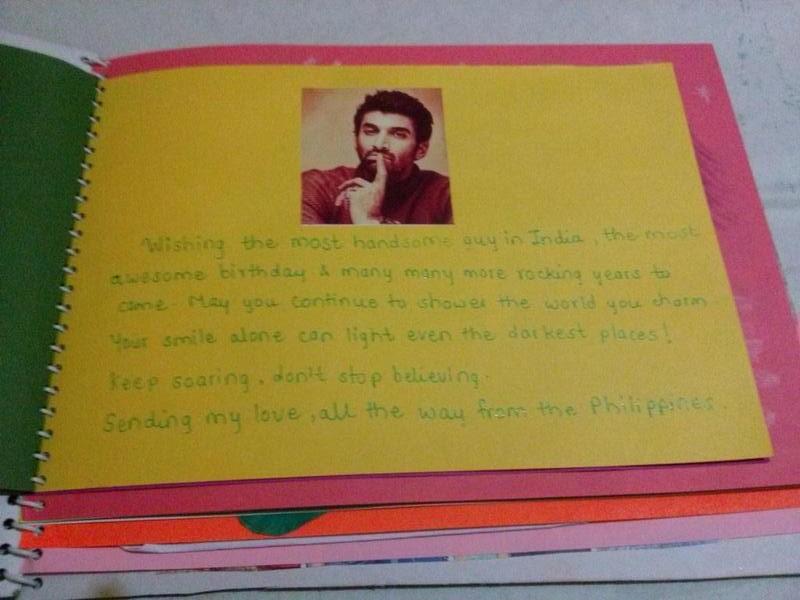 Wishing the most handsome guy in India, the most
awesome birthday & many many more rocking years to
come. May you continue to shower the world you charm.
Your smile alone can light even the darkest places!
Keep soaring, don't stop believing.
Sending my love, all the way from the Philippines.